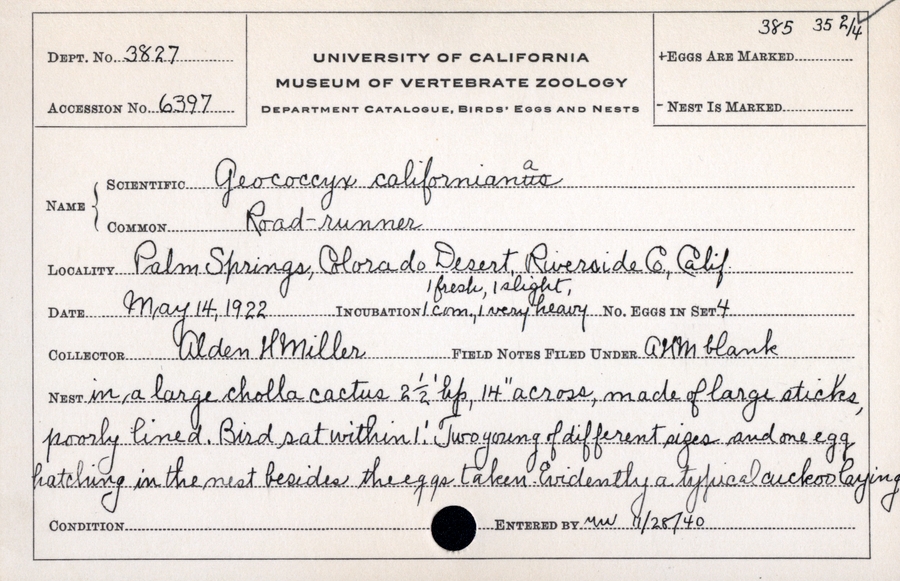 385 35 2/4
DEPT. No. 3827
UNIVERSITY OF CALIFORNIA
+EGGS ARE MARKED
MUSEUM OF VERTEBRATE ZOOLOGY
ACCESSION No. 6397
DEPARTMENT CATALOGUE, BIRDS' EGGS AND NESTS
- NEST IS MARKED
a
NAME { SCIENTIFIC Geococcyx californianus
COMMON Road-runner
LOCALITY Palm Springs, Colorado Desert, Riverside Co, Calif.
1 fresh, 1 slight,
DATE May 14, 1922 INCUBATION 1 com., 1 very heavy No. EGGS IN SET 4
COLLECTOR Alden H Miller FIELD NOTES FILED UNDER AHM blank
NEST in a large cholla cactus 2½' up, 14" across, made of large sticks,
poorly lined. Bird sat within 1'. Two young of different sizes and one egg
hatching in the nest besides the eggs taken. Evidently a typical cuckoo laying
CONDITION ENTERED BY 11/28/40